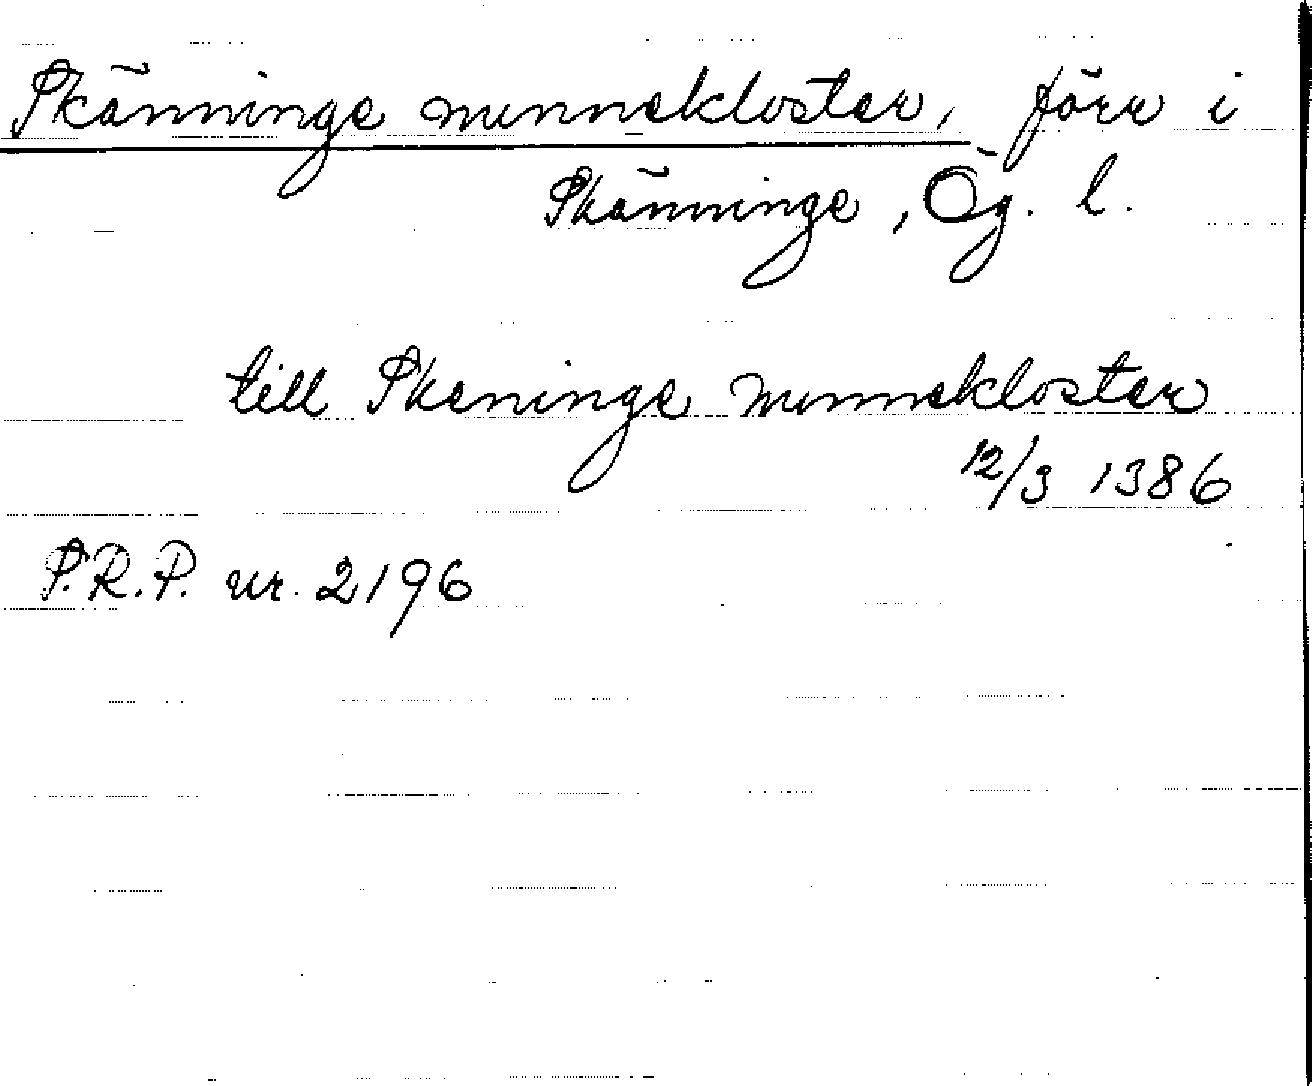 Skänninge nunnekloster, förr i
Skänninge, Ög. l.
till Skeninge nunnekloster
12/3 1386
S.R.P. nr. 2196